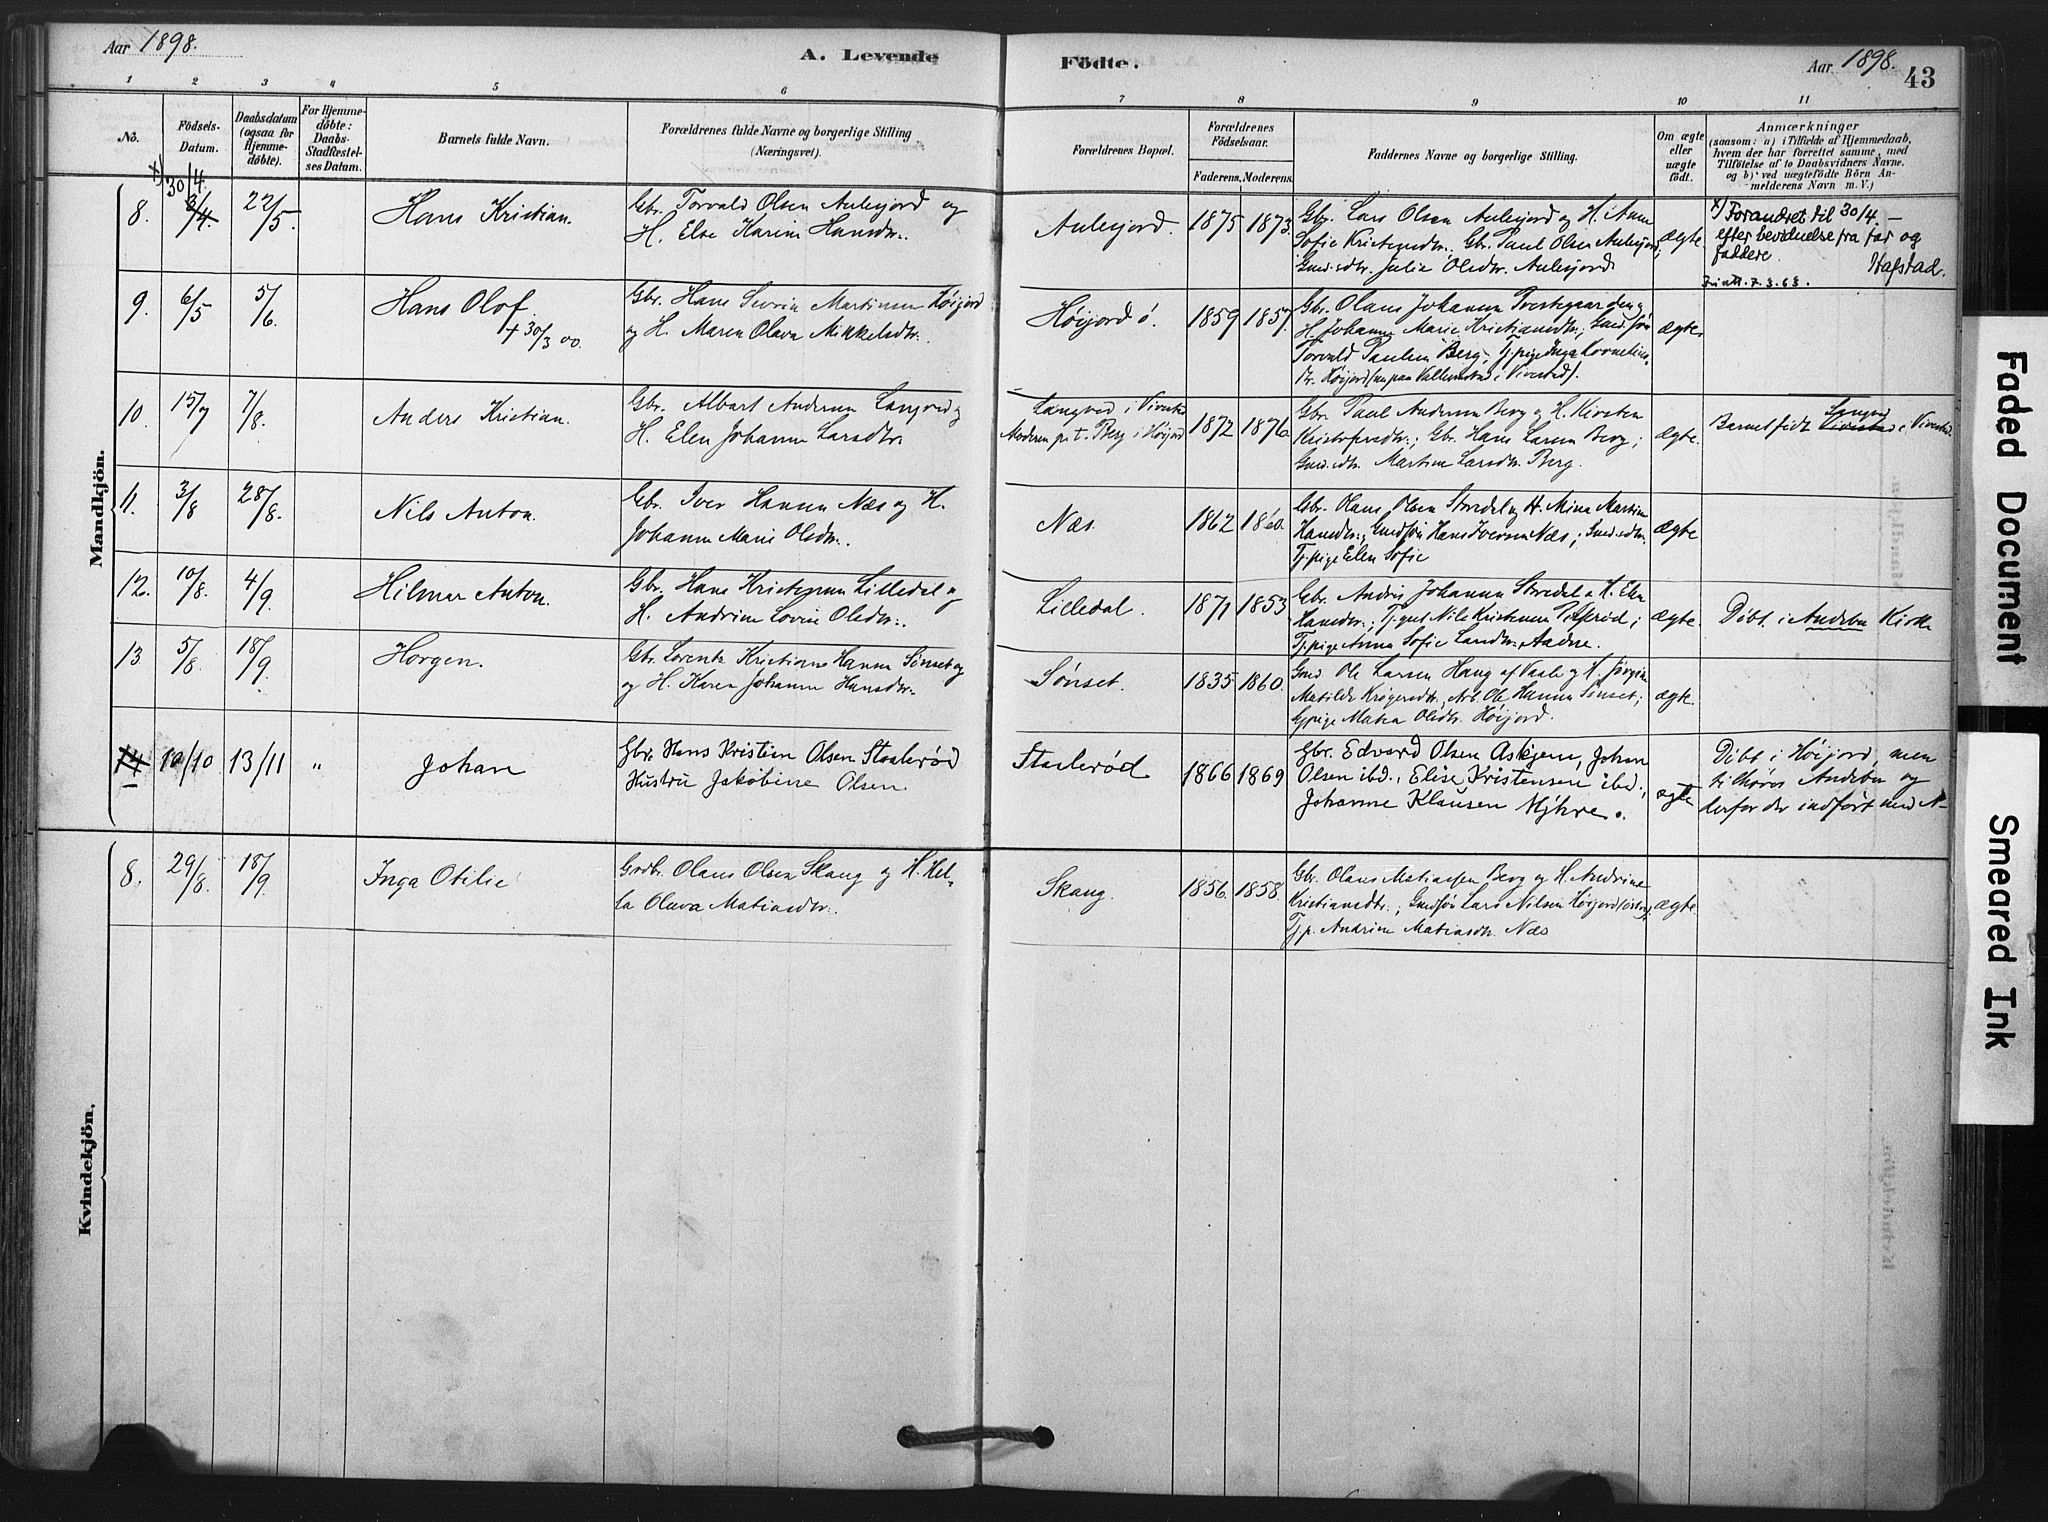 Aar 1898.
A. Levende Fødte.
Aar 1898.
43
1 2 3 4 5 6 7 8 9 10 11
No.
Födsels-
Datum.
Daabsdatum
(ogsaa for
Hjemme-
döbte).
For Hjemme-
döbte:
Daabs-
Stadfæstel-
ses Datum.
Barnets fulde Navn.
Forældrenes fulde Navne og borgerlige Stilling
(Næringsvei).
Forældrenes Bopæl.
Forældrenes
Födselsaar.
Faderens. Moderens.
Faddernes Navne og borgerlige Stilling.
Om ægte
eller
uægte
födt.
Anmærkninger
(saasom: a) i Tilfælde af Hjemmedaab,
hvem der har forrettet samme, med
Tilföielse af to Daabsvidners Navne,
og b) ved uægtefödte Börn An-
melderens Navn m. V.)
Mandkjön.
x) 30/4.
8. 3/4 22/5. Hans Kristian.
Gbr. Torvald Olsen Aulesjord og
H. Else Karine Hansdtr.
Aulesjord. 1875 1873.
Gbr. Lars Olsen Aulesjord og H. Anne
Sofie Kristensdtr.; Gbr. Paul Olsen Aulesjord;
Gmd.sdtr. Julie Olsdtr. Aulesjord
ægte
x) Forandret til 30/4 -
efter bevidnelse fra far og
faddere.
Hafstad.
7.3.63.
9. 6/5 5/6. Hans Olof
+ 30/3 00.
Gbr. Hans Sevrin Martinsen Höijord
og H. Maren Olava Mikkelsdtr.
Höijord ö. 1859 1857.
Gbr. Olaus Johannsen
H. Johanne Marie Kristiansdtr.; Gmd.sön
Torvald Paulsen Berg; Tj.pige Inga Kornelius-
dtr. Höijord i Vivestad).
ægte
10. 15/7 7/8. Anders Kristian.
Gbr. Albert Andersen Langved og
H. Elen Johanne Larsdtr.
Langved i Vivestad
Moderen p.t. Berg i Höijord
1872 1876.
Gbr. Paul Andersen Berg og H. Kirsten
Kristofersdtr.; Gbr. Hans Larsen Berg;
Gmd.sdtr. Martine Larsdtr. Berg.
ægte.
Langved
Barnet födt Vivestad i Vivestad.
11. 3/8 28/8. Nils Anton.
Gbr. Iver Hansen Næs og H.
Johanne Marie Olsdtr.
Næs. 1862 1860.
Gbr. Olaus Olsen Storedel og H. Mina Martine
Hansdtr.; Gmdsön Hans Iversen Næs; Gmd.sdtr.
Tj.pige Elen Sofie
ægte
12. 10/8. 4/9. Hilmar Anton.
Gbr. Hans Kristensen Lilledal og
H. Andrine Lovise Olsdtr.
Lilledal. 1871 1853
Gbr. Anders Johannsen Storedel og H. Elen
Hansdtr.; Tj.gut Nils Kristensen
Tj.pige Anna Sofie Larsdtr. Aadne.
ægte.
Döbt i Andebu Kirke
13. 5/8. 18/9. Horgen.
Gbr. Lorentz Kristian Hansen Sönset og
og H. Karen Johanne Hansdtr.
Sönset. 1835 1860.
Gmd. Ole Larsen Haug af Vaale og H. Jörgine
Matilde Krögersdtr., Arb. Ole Hansen Sönset;
Tj.pige Matea Olsdtr. Höijord.
ægte.
14 10/10 13/11 „ Johan
Gbr. Hans Kristian Olsen Staalerød
Hustru Jakobine Olsen.
Staalerød 1866 1869
Gbr. Edvard Olsen Askjem, Johan
Olsen ibd., Elise Kristensen ibd.,
Johanne Klausen Myhre.
ægte
Döbt i Höijord, men
tilhörer Andebu og
derfor der indfört med N-
Kvindekjön.
8. 29/8. 18/9. Inga Otilie
Grdb. Olaus Olsen Skaug og H. Hel-
la Olava Matiasdtr.
Skaug. 1856. 1858.
Gbr. Olaus Matiassen Berg og H. Andrine
Kristiansdtr.; Gmdsön Lars Nilsen Höijord
Tj.p. Andrine Matiasdtr. Næs
ægte.
Faded Document
Smeared Ink